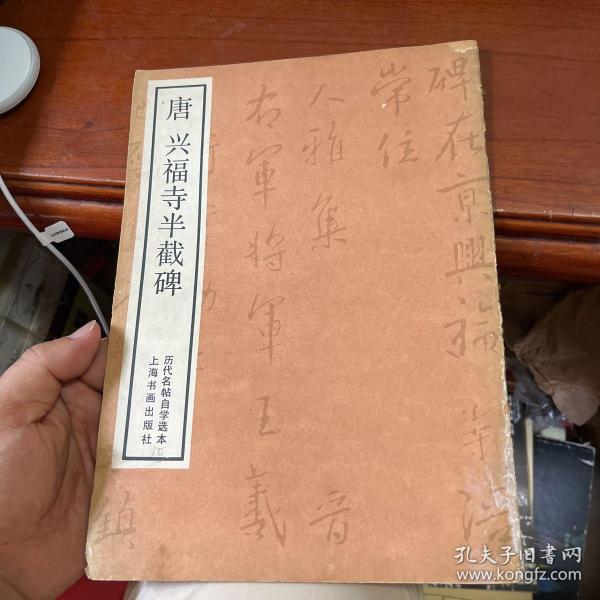 唐 兴福寺半截碑
历代名帖自学选本
上海书画出版社
碑在京興福寺
常住
人雅集
晋
右軍將軍王羲
鎮
孔夫子旧书网
www.kongfz.com